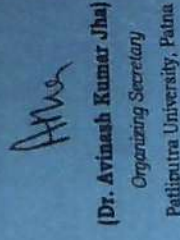 (Dr. Avinash Kumar Jha)
Organizing Secretary
Patliputra University, Patna